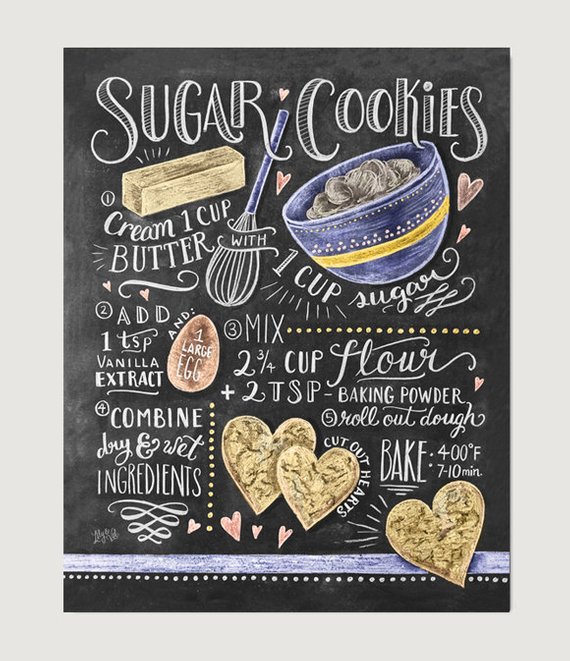 SUGAR COOKIES
① Cream 1 CUP
BUTTER WITH
1 CUP sugar
② ADD
1 tsp
VANILLA
EXTRACT
AND:
1
LARGE
EGG
③ MIX
2 3/4 CUP flour
+ 2 TSP - BAKING POWDER
④ COMBINE
dry & wet
INGREDIENTS
⑤ roll out dough
CUT OUT HEARTS
BAKE: 400°F
7-10 min.
Lily & Val